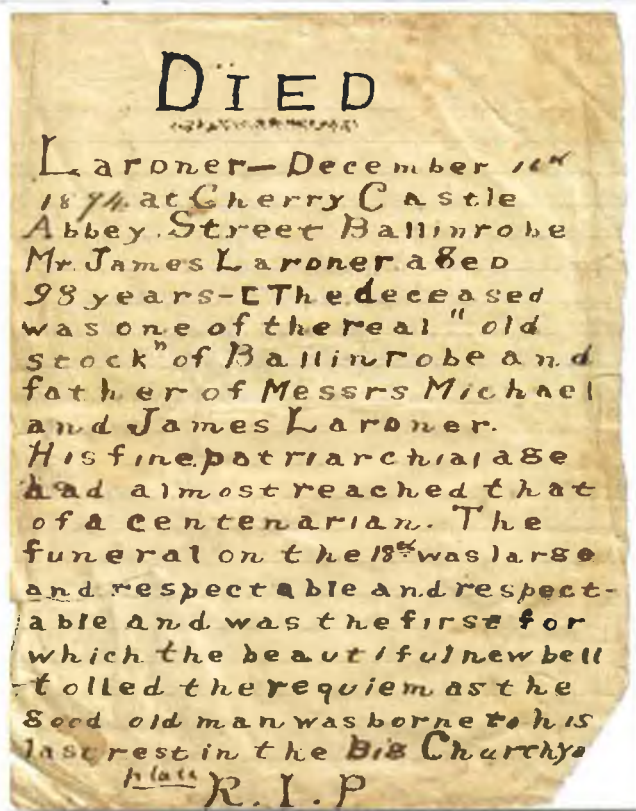 DIED
Lardner — December 16th
1894 at Cherry Castle
Abbey. Street Ballinrobe
Mr. James Lardner aged
98 years - [The deceased
was one of the real "old
stock" of Ballinrobe and
father of Messrs Michael
and James Lardner.
His fine patriarchial age
had almost reached that
of a centenarian. The
funeral on the 18th was large
and respectable and respect-
able and was the first for
which the beautiful new bell
tolled the requiem as the
good old man was borne to his
last rest in the Big Churchya
place
R.I.P